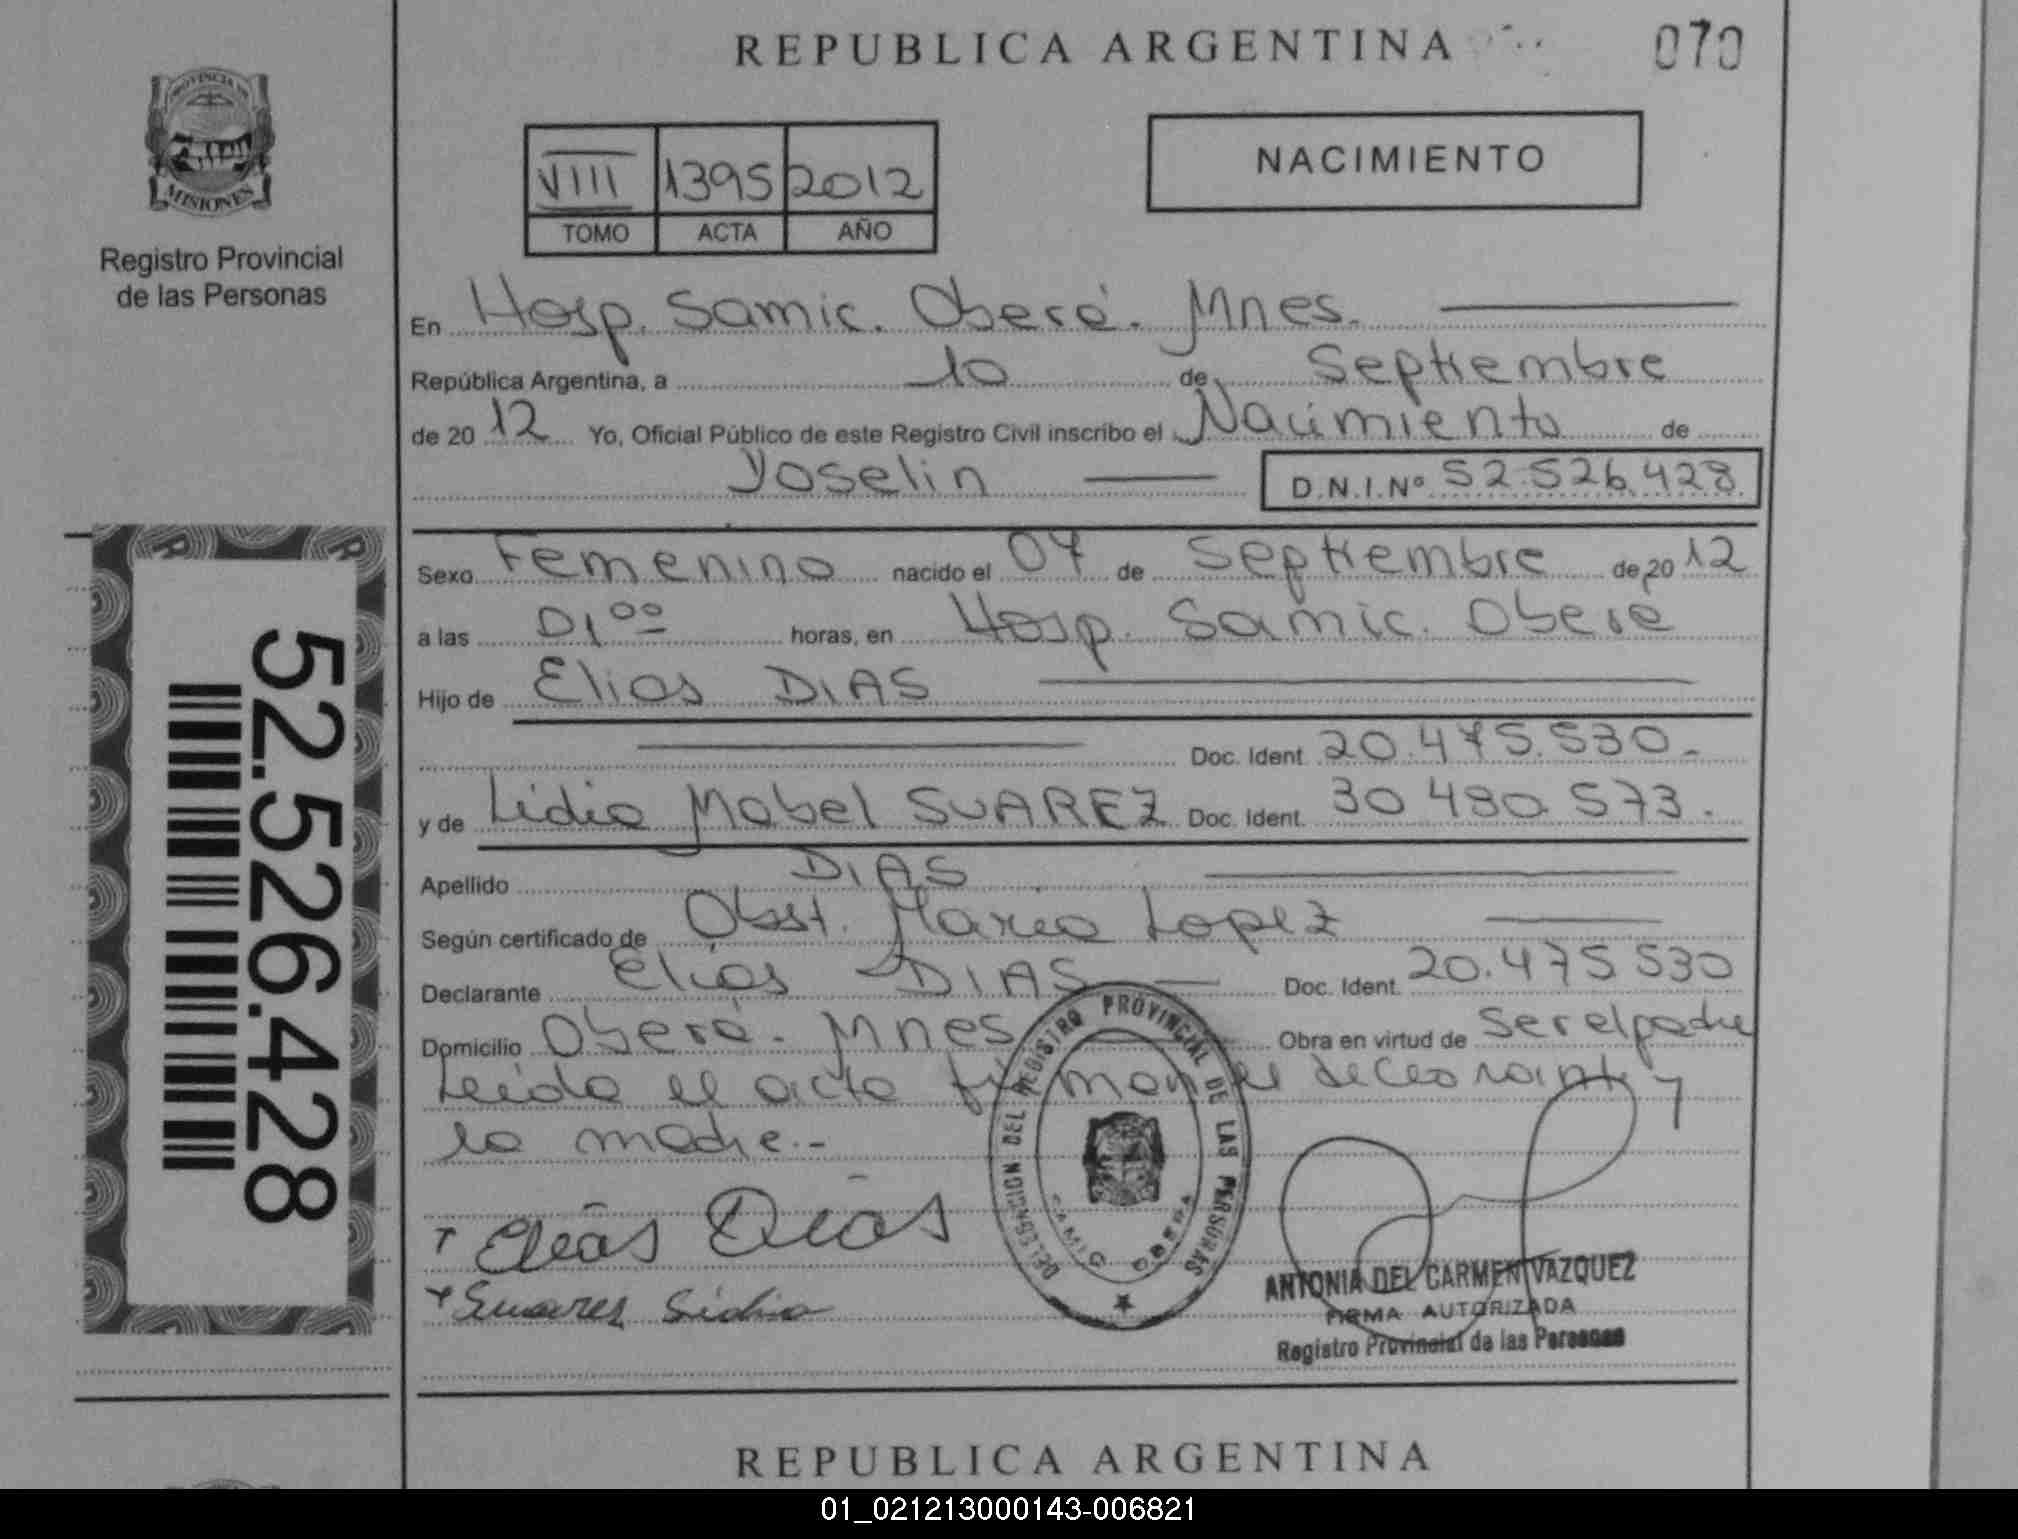 REPUBLICA ARGENTINA
070
PROVINCIA DE
MISIONES
Registro Provincial
de las Personas
VIII 1395 2012
TOMO ACTA AÑO
NACIMIENTO
En Hosp. Samic. Oberá. Mnes.
República Argentina, a 10 de Septiembre
de 20 12 Yo, Oficial Público de este Registro Civil inscribo el Nacimiento de
Yoselin D.N.I.Nº 52.526.428
Sexo Femenino nacido el 07 de Septiembre de 20 12
a las 01 00 horas, en Hosp. Samic. Oberá
Hijo de Elias DIAS
Doc. Ident. 20.475.530.-
y de Lidia Mabel SUAREZ Doc. Ident. 30 480 573.
Apellido DIAS
Según certificado de Obst. Maria Lopez
Declarante Elias DIAS Doc. Ident. 20.475 530
Domicilio Oberá. Mnes Obra en virtud de ser el padre
Leida el acta firman el declarante y
la madre.-
Elias Dias
Suarez Lidia
DELEGACION DEL REGISTRO PROVINCIAL DE LAS PERSONAS
SAMIC OBERA
ANTONIA DEL CARMEN VAZQUEZ
FIRMA AUTORIZADA
Registro Provincial de las Personas
52.526.428
REPUBLICA ARGENTINA
01_021213000143-006821